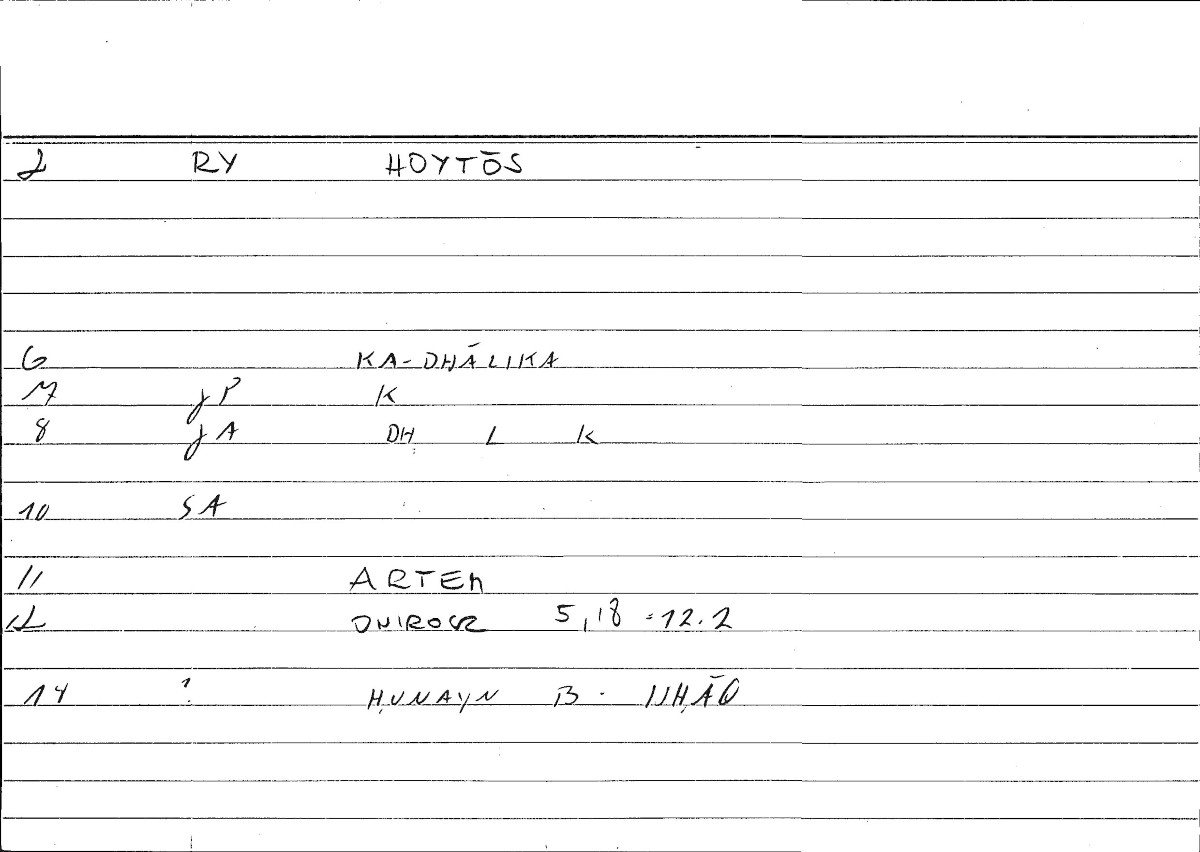 2 RY HOYTŌS
6 KA-DHĀLIKA
7 jP K
8 jA DH L K
10 SA
11 ARTEM
12 ONIROCR 5,18 - 12.2
14 ? ḤUNAYN B. ISḤĀQ